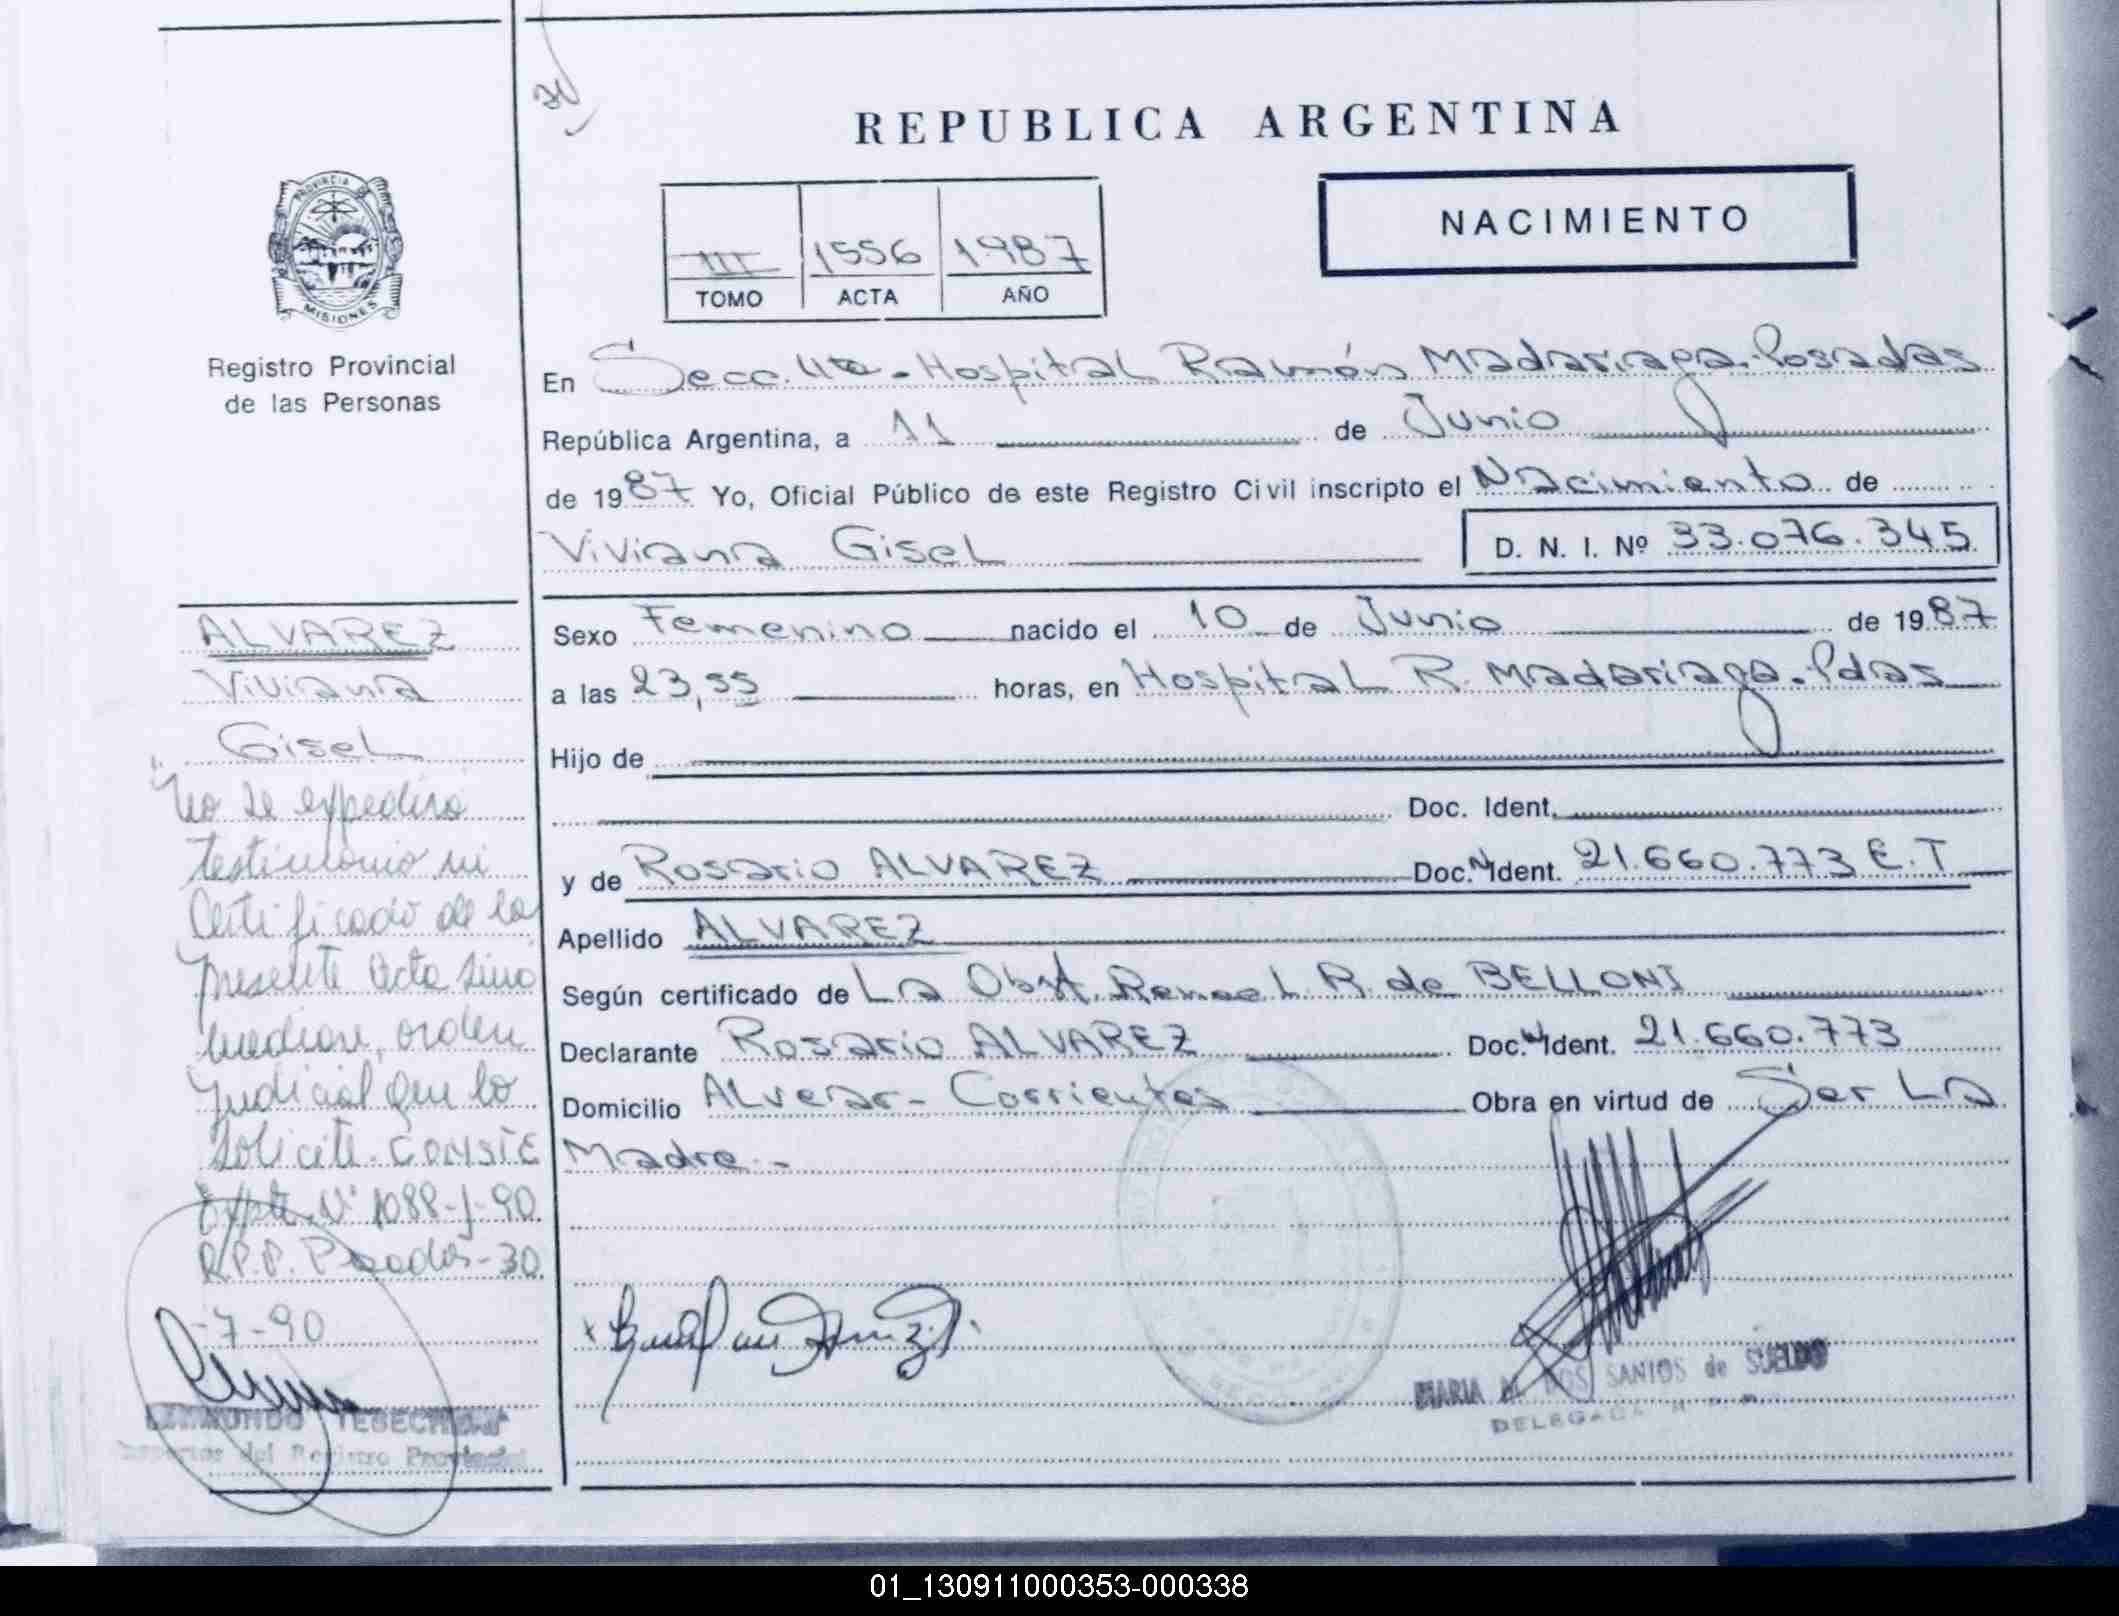 REPUBLICA ARGENTINA
NACIMIENTO
III 1556 1987
TOMO ACTA AÑO
PROVINCIA DE
MISIONES
Registro Provincial
de las Personas
En Secc. 4ta - Hospital Ramón Madariaga. Posadas
República Argentina, a 11 de Junio
de 1987 Yo, Oficial Público de este Registro Civil inscripto el Nacimiento de
Viviana Gisel D. N. I. Nº 33.076.345
Sexo Femenino nacido el 10 de Junio de 1987
a las 23,55 horas, en Hospital R. Madariaga. Pdas
Hijo de
Doc. Ident.
y de Rosario ALVAREZ Doc. N Ident. 21.660.773 E.T
Apellido ALVAREZ
Según certificado de La Obst. R. de BELLONI
Declarante Rosario ALVAREZ Doc. N Ident. 21.660.773
Domicilio ALvear - Corrientes Obra en virtud de Ser La
Madre.-
ALVAREZ
Viviana
Gisel
"No se expedira
testimonio ni
Certificado de la
presente acta sino
mediare, orden
judicial que lo
solicite. CONSTE
Expte. Nº 1088-J-90
R.P.P. Posadas - 30
-7-90
del Registro Provincial
MARIA M. DOS SANTOS de SUELDO
DELEGADA
01_130911000353-000338